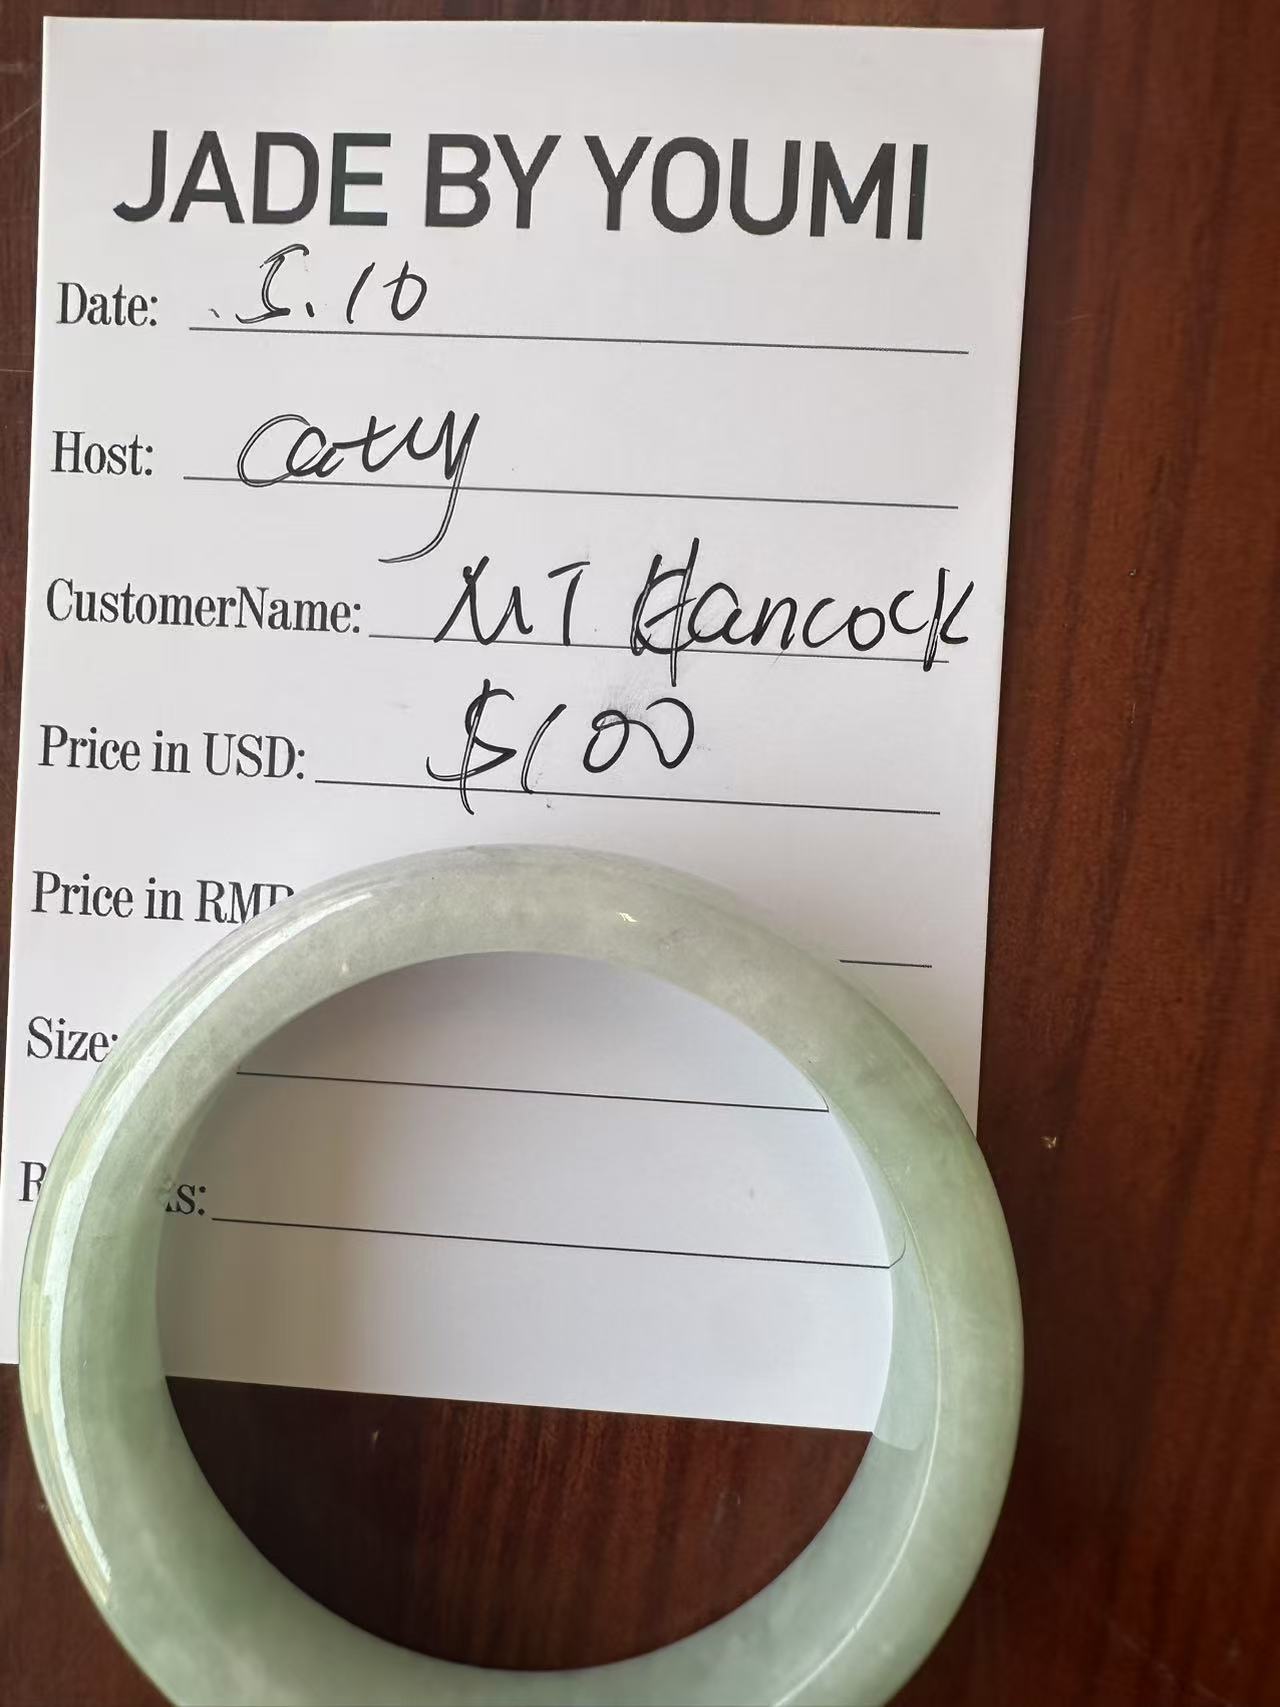 JADE BY YOUMI
Date: 5.10
Host: Caty
CustomerName: MT Hancock
Price in USD: $100
Price in RM
Size: